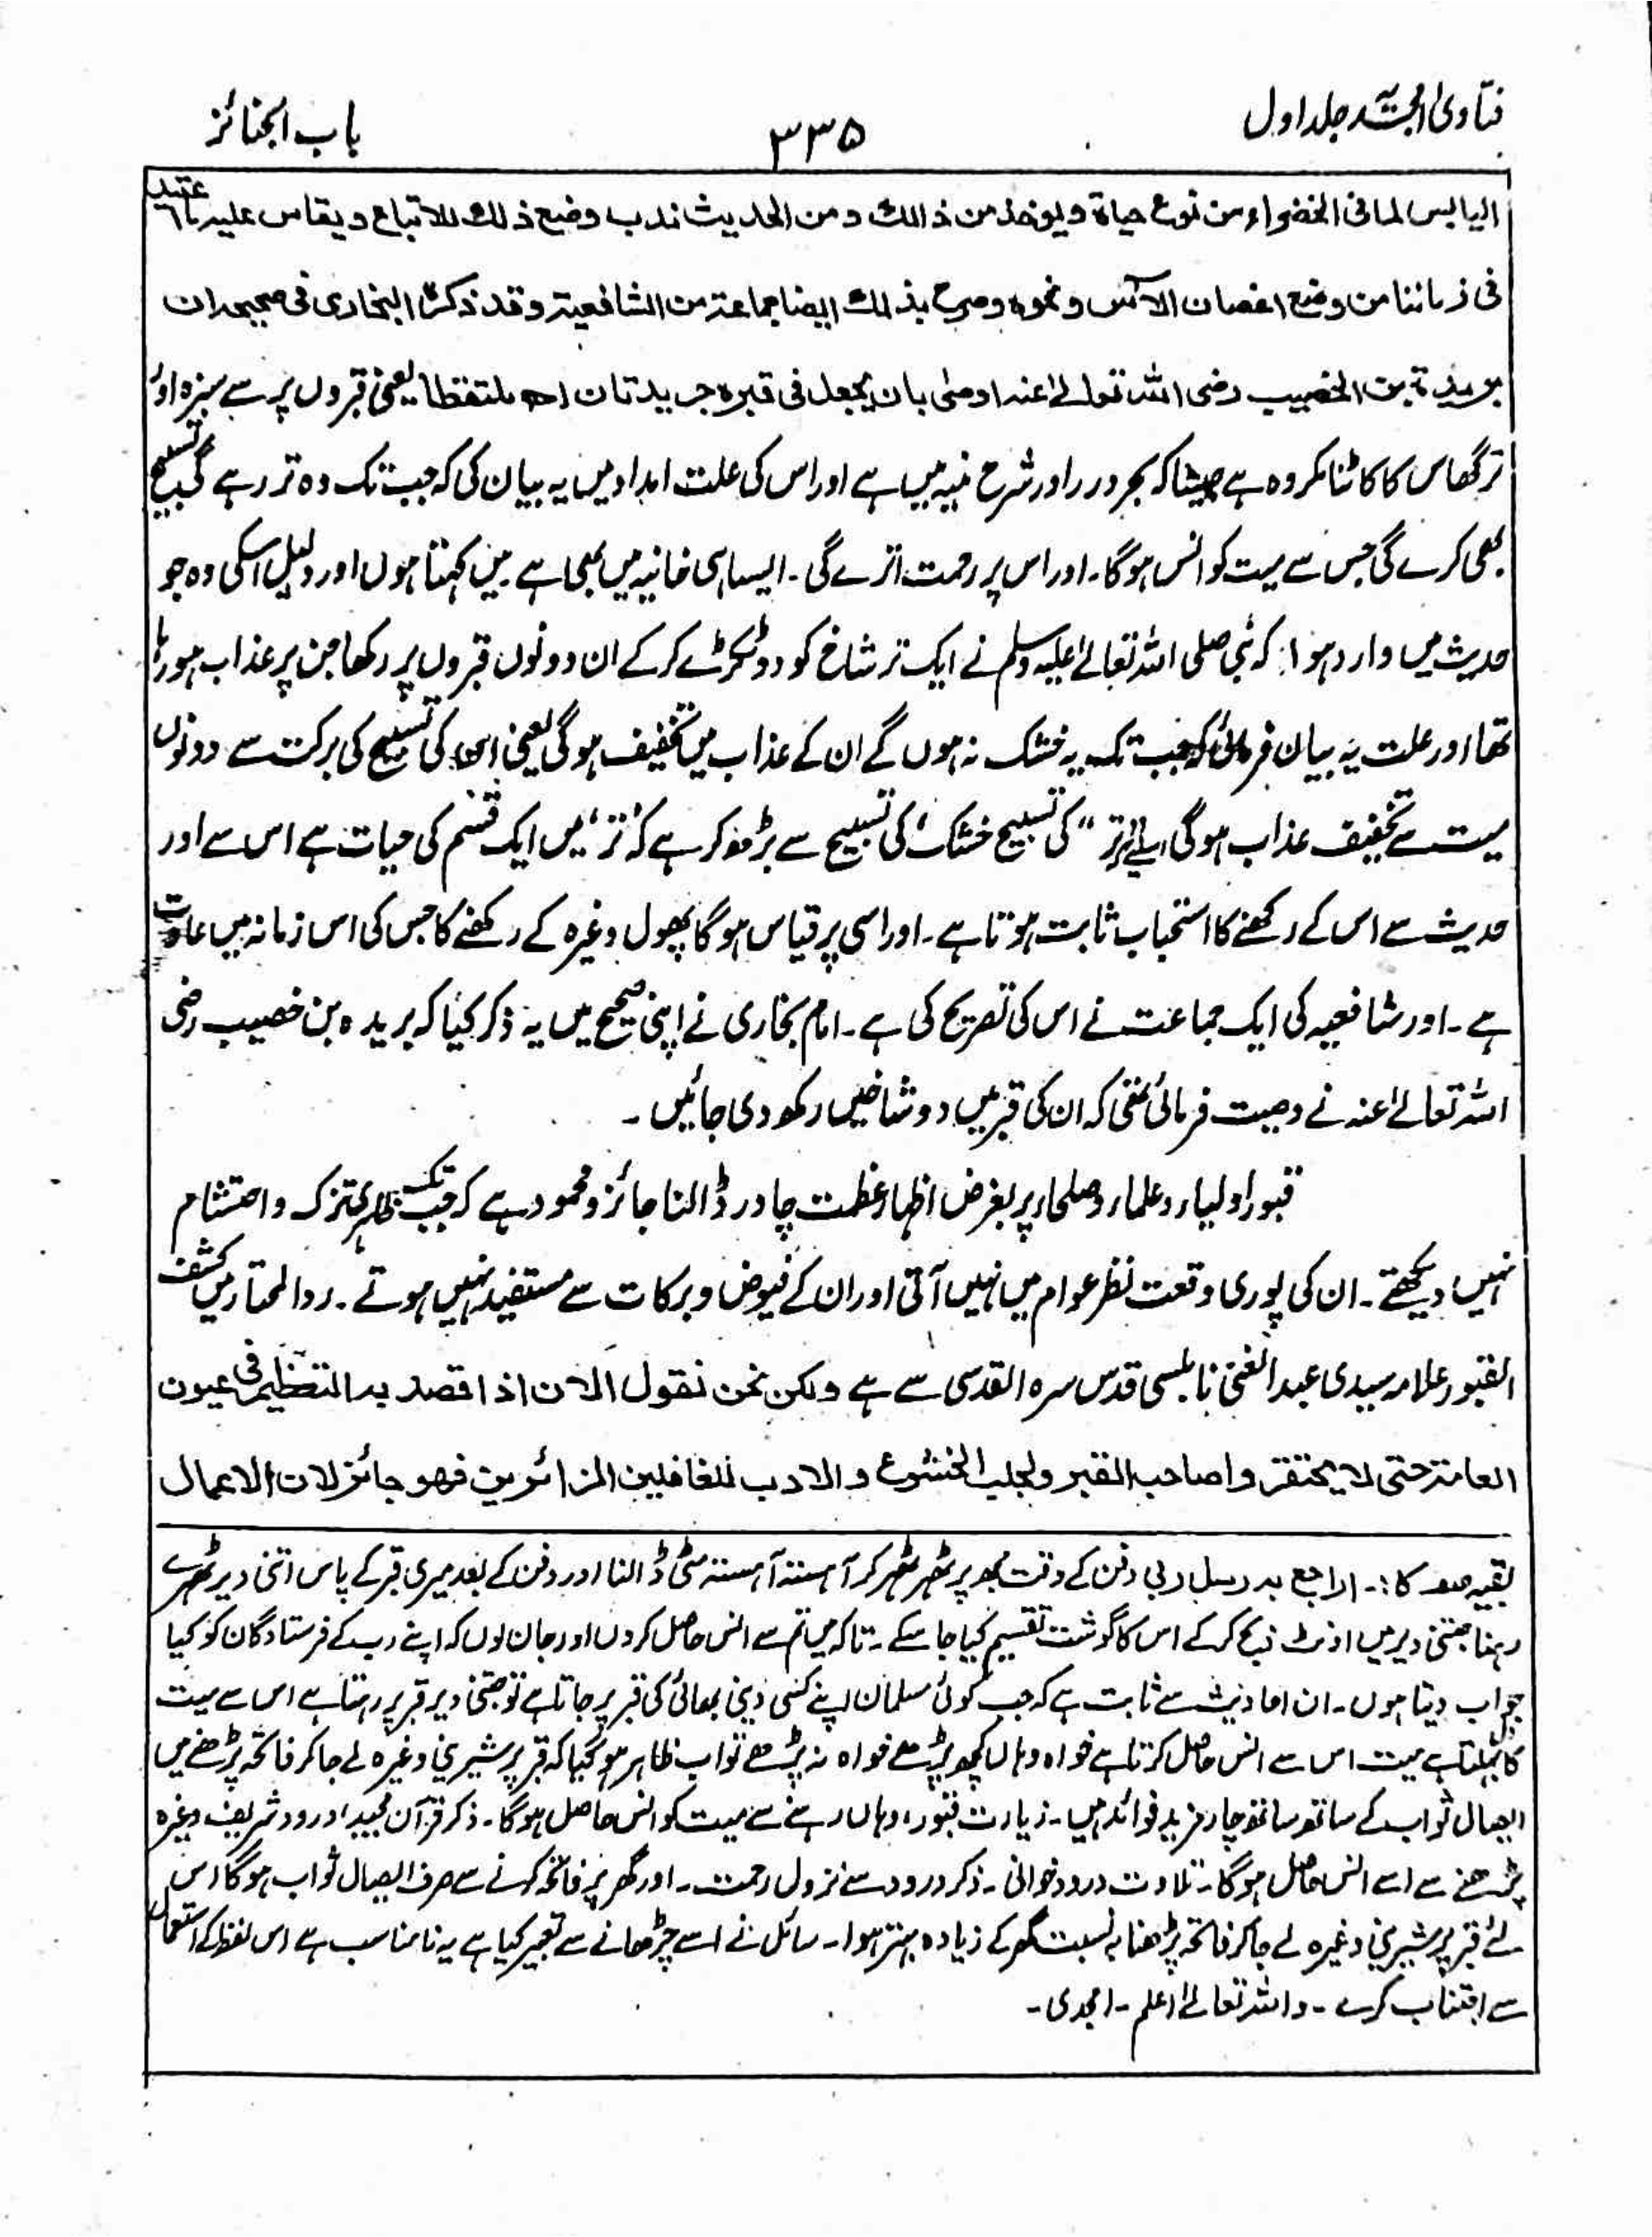 فتاویٰ امجدیہ جلد اول
۳۳۵
باب الجنائز
الیابس لما فی الخضراء من نوع حیاۃ ویوخذ من ذالک ومن الحدیث ندب وضع ذلک للاتباع ویقاس علیہ ما اعتید
فی زماننا من وضع اغصان الآس ونحوہ وصرح بذلک ایضا جماعۃ من الشافعیۃ وقد ذکرہ البخاری فی صحیحہ ان
بریدۃ بن الخصیب رضی اللہ تعالےٰ عنہ اوصیٰ بان یجعل فی قبرہ جریدتان اھ ملتقطا یعنی قبروں پر سے سبزہ اور
تر گھاس کا کاٹنا مکروہ ہے جیسا کہ بحر درر اور شرح منیہ میں ہے اور اس کی علت امداد میں یہ بیان کی کہ جب تک وہ تر رہے گی تسبیح
بھی کرے گی جس سے میت کو انس ہوگا۔ اور اس پر رحمت اترے گی۔ ایسا ہی خانیہ میں بھی ہے میں کہتا ہوں اور دلیل اسکی وہ جو
حدیث میں وارد ہوا: کہ نبی صلی اللہ تعالےٰ علیہ وسلم نے ایک تر شاخ کو دو ٹکڑے کرکے ان دونوں قبروں پر رکھا جن پر عذاب ہو رہا
تھا اور علت یہ بیان فرمائی کہ جب تک یہ خشک نہ ہوں گے ان کے عذاب میں تخفیف ہوگی یعنی ان کی تسبیح کی برکت سے دونوں
میت سے تخفیف عذاب ہوگی اسلئے کہ تر" کی تسبیح خشک، کی تسبیح سے بڑھ کر ہے کہ ’تر‘ میں ایک قسم کی حیات ہے اس سے اور
حدیث سے اس کے رکھنے کا استحباب ثابت ہوتا ہے۔ اور اسی پر قیاس ہوگا پھول وغیرہ کے رکھنے کا جس کی اس زمانہ میں عادت
ہے۔ اور شافعیہ کی ایک جماعت نے اس کی تصریح کی ہے۔ امام بخاری نے اپنی صحیح میں یہ ذکر کیا کہ بریدہ بن خصیب رضی
اللہ تعالےٰ عنہ نے وصیت فرمائی تھی کہ ان کی قبر میں دو شاخیں رکھ دی جائیں ۔
قبور اولیاء وعلماء وصلحاء پر بغرض اظہار عظمت چادر ڈالنا جائز و محمود ہے کہ جب تک ظاہری تزک و احتشام
نہیں دیکھتے۔ ان کی پوری وقعت نظر عوام میں نہیں آتی اور ان کے فیوض و برکات سے مستفید نہیں ہوتے۔ ردالمحتار میں کشف
القبور علامہ سیدی عبد الغنی نابلسی قدس سرہ القدسی سے ہے ولکن نحن نقول الان اذا قصد بہ التعظیم فی عیون
العامۃ حتی لا یحتقروا صاحب القبر ولجلب الخشوع والادب للغافلین الزائرین فھو جائز لان الاعمال
بقیہ صـ کا:۔ اراجع بہ رسل ربی دفن کے وقت مجھ پر ٹھہر ٹھہر کر آہستہ آہستہ مٹی ڈالنا اور دفن کے بعد میری قبر کے پاس اتنی دیر ٹھہرے
رہنا جتنی دیر میں اونٹ ذبح کرکے اس کا گوشت تقسیم کیا جا سکے۔ تاکہ میں تم سے انس حاصل کروں اور جان لوں کہ اپنے رب کے فرستادگان کو کیا
جواب دیتا ہوں۔ ان احادیث سے ثابت ہے کہ جب کوئی مسلمان اپنے کسی دینی بھائی کی قبر پر جاتا ہے تو جتنی دیر قبر پر رہتا ہے اس سے میت
کا جی بہلتا ہے میت اس سے انس حاصل کرتا ہے خواہ وہاں کچھ پڑھے خواہ نہ پڑھے تو اب ظاہر ہوگیا کہ قبر پر شیرینی وغیرہ لے جاکر فاتحہ پڑھنے میں
ایصال ثواب کے ساتھ ساتھ چار مزید فوائد ہیں۔ زیارت قبور، وہاں رہنے سے میت کو انس حاصل ہوگا۔ ذکر قرآن مجید اور درود شریف وغیرہ
پڑھنے سے اسے انس حاصل ہوگا۔ تلاوت درود خوانی۔ ذکر درود سے نزول رحمت۔ اور گھر پر فاتحہ کرنے سے صرف ایصال ثواب ہوگا اس
لئے قبر پر شیرینی وغیرہ لے جاکر فاتحہ پڑھنا بہ نسبت گھر کے زیادہ بہتر ہوا۔ سائل نے اسے چڑھانے سے تعبیر کیا ہے یہ نامناسب ہے اس لفظ کے استعمال
سے اجتناب کرے۔ واللہ تعالےٰ اعلم۔ امجدی۔